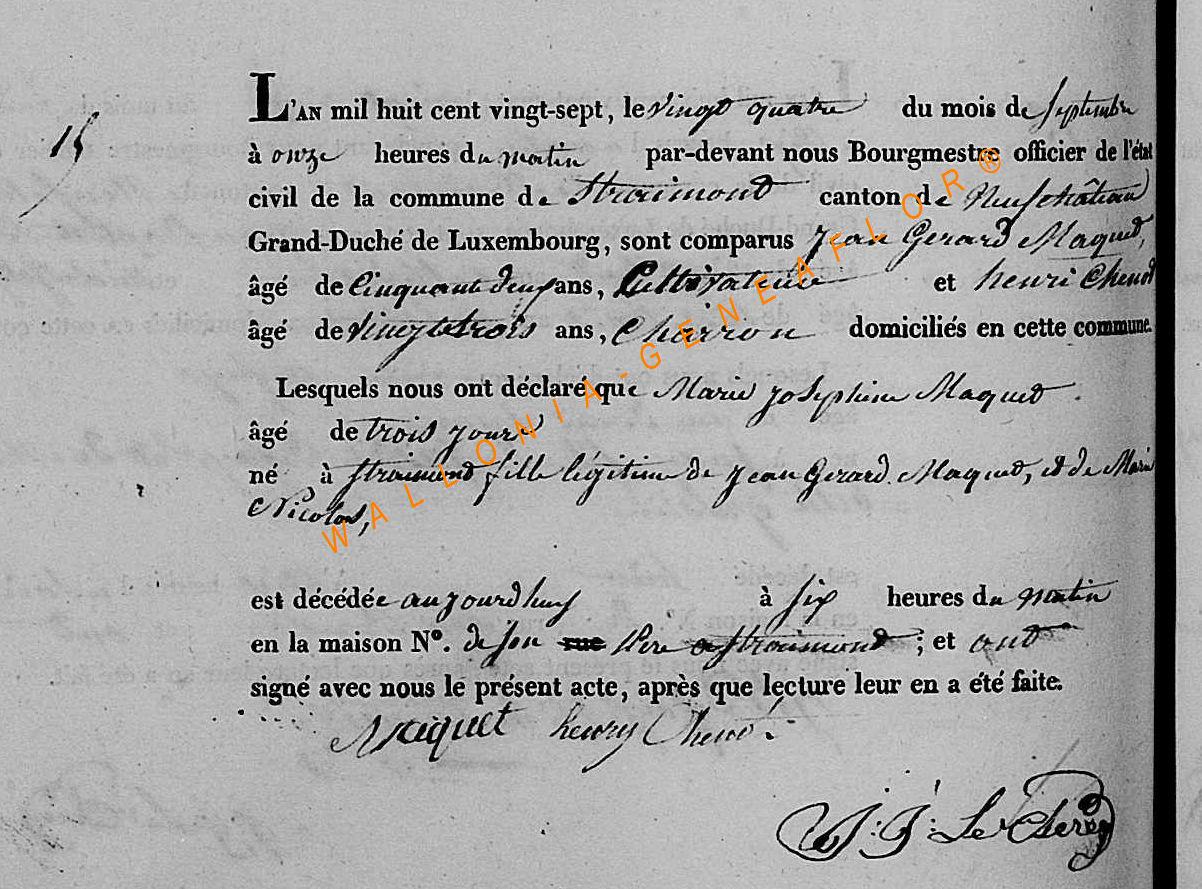 15
L'AN mil huit cent vingt-sept, le vingt quatre du mois de septembre
à onze heures du matin par-devant nous Bourgmestre officier de l'état
civil de la commune de Straimont canton de Neufchâteau
Grand-Duché de Luxembourg, sont comparus Jean Gerard Maquet,
âgé de Cinquant deux ans, Cultivateur et henri Chenot
âgé de vingt trois ans, Charron domiciliés en cette commune.
Lesquels nous ont déclaré que Marie josephine Maquet
âgé de trois jours
né à straimont fille légitime de Jean Gerard Maquet, et de Marie
Nicolas,
est décédée aujourdhuy à six heures du matin
en la maison N°. de son rue Père a straimont ; et ont
signé avec nous le présent acte, après que lecture leur en a été faite.
Maquet henry Chenot.
WALLONIA-GENEAFLOR®